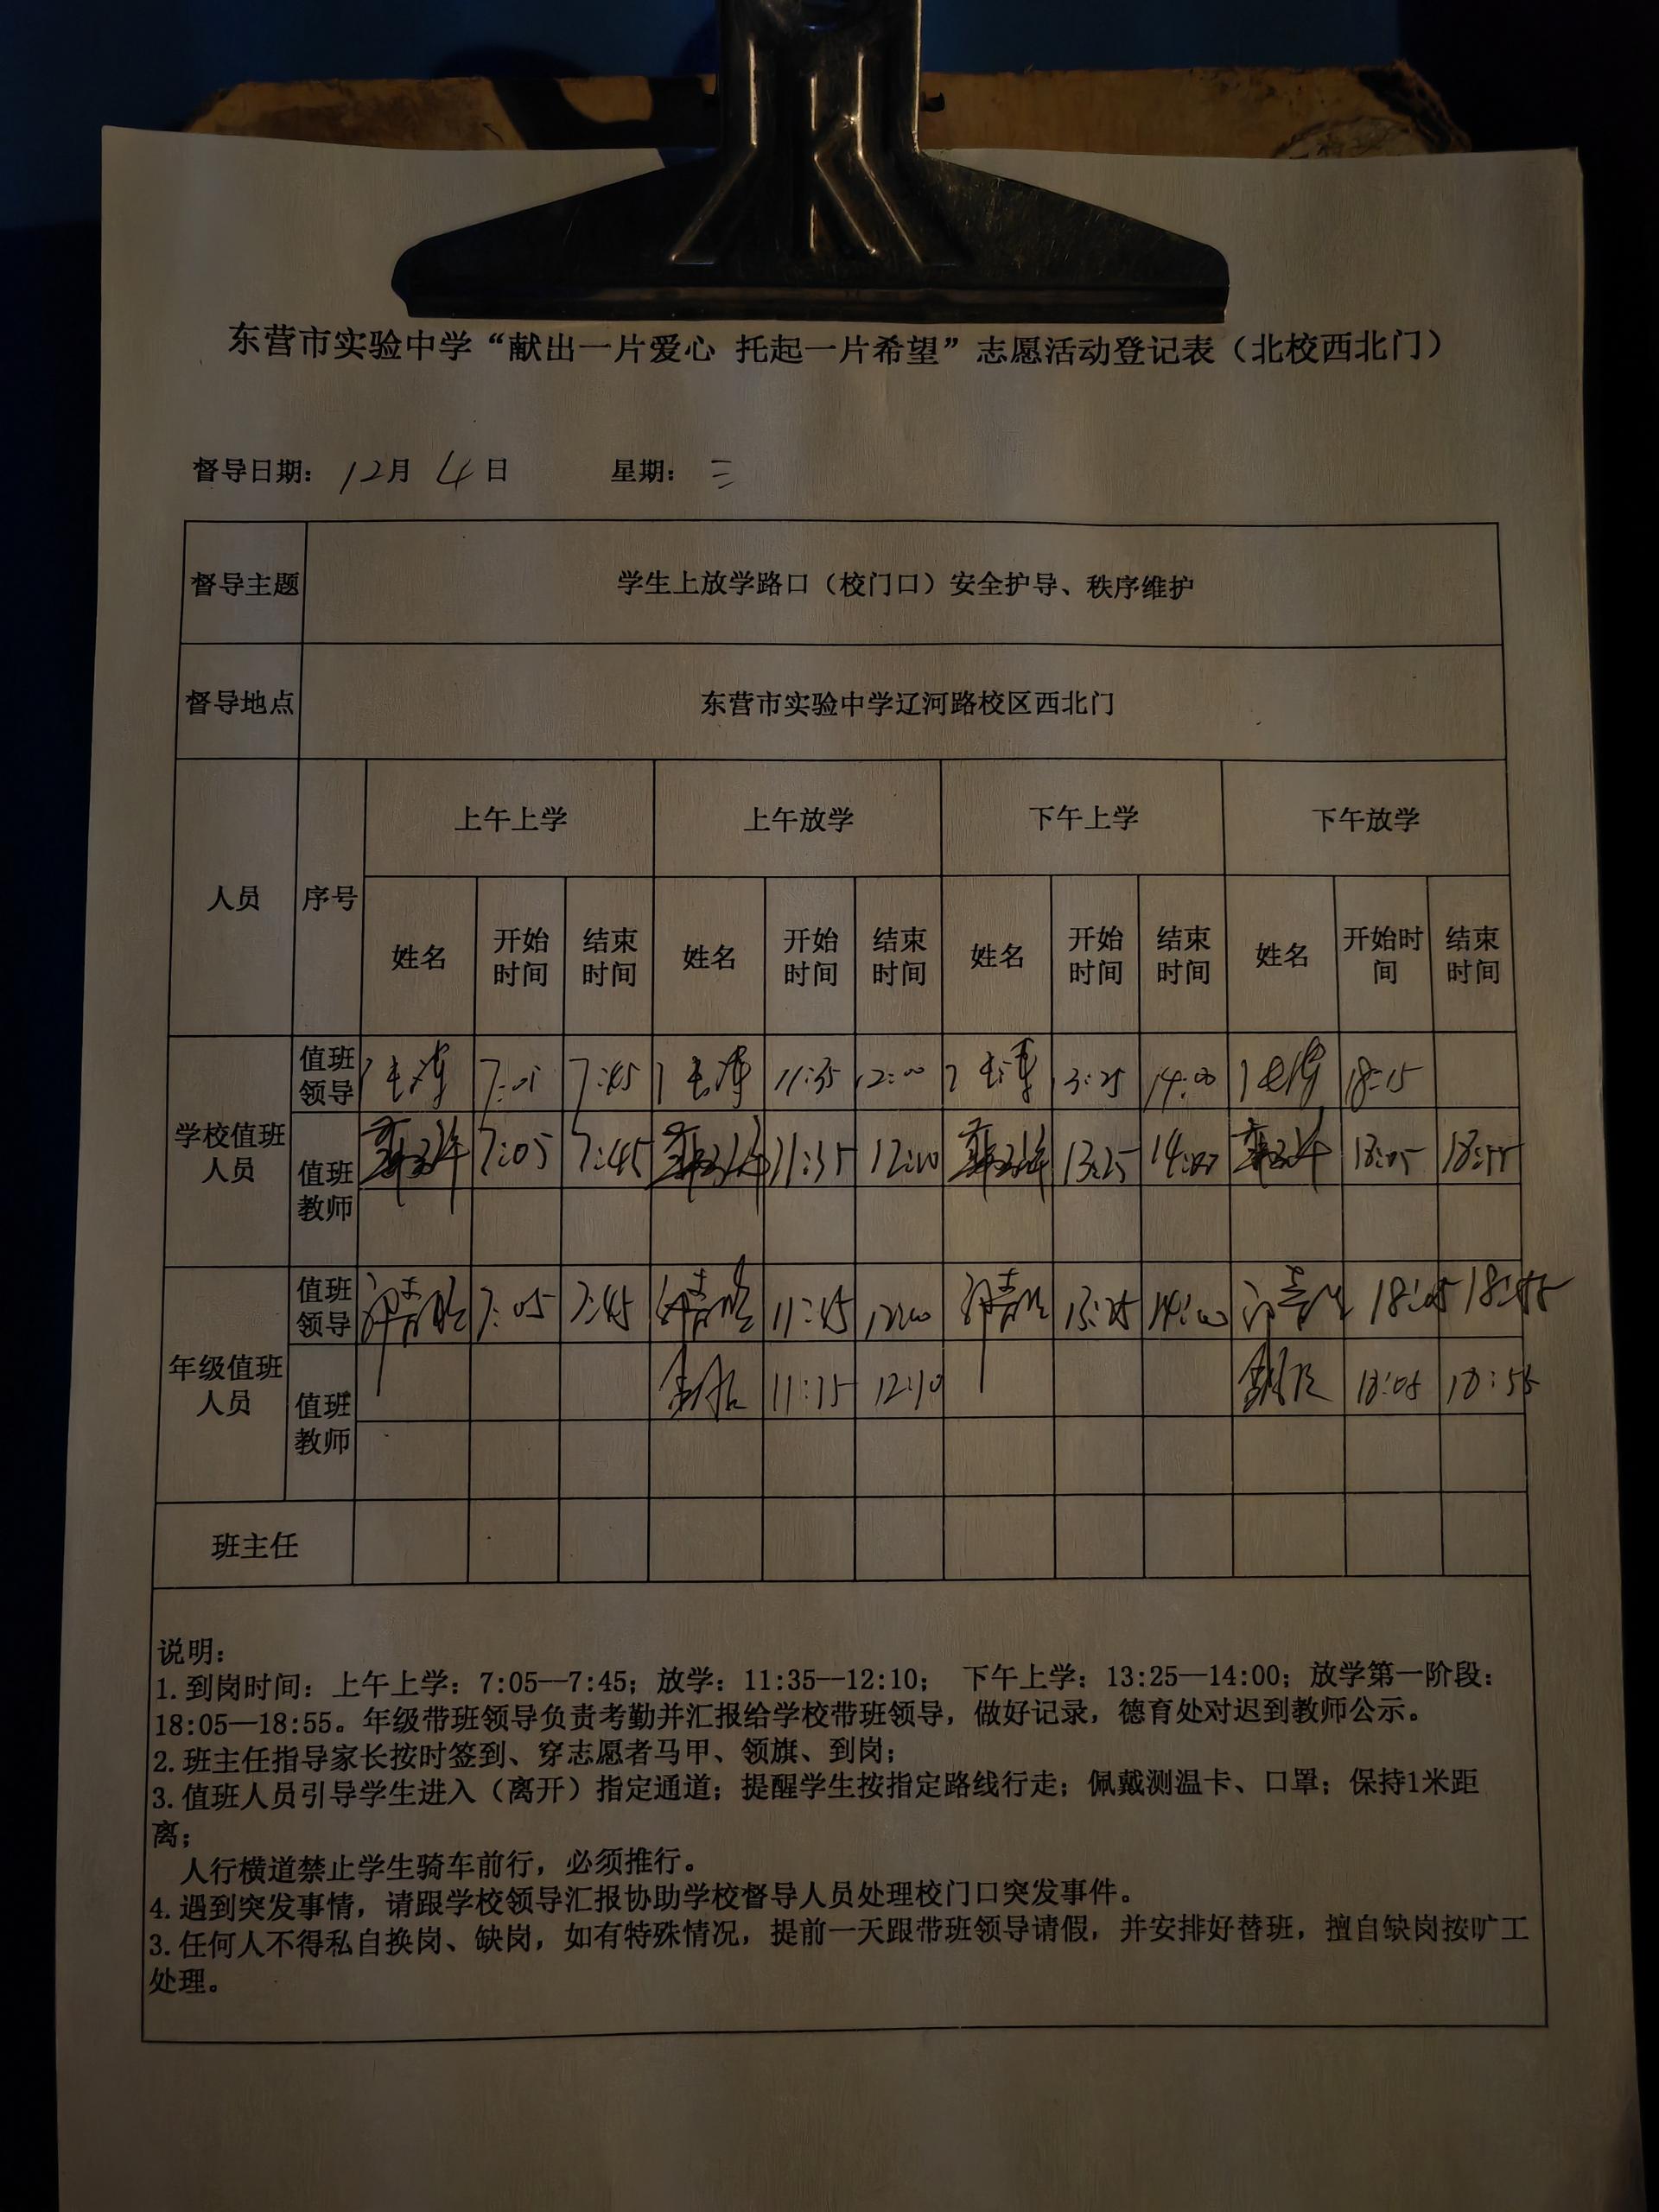 东营市实验中学“献出一片爱心 托起一片希望”志愿活动登记表（北校西北门）
督导日期： 12月 4日 星期： 三
督导主题 学生上放学路口（校门口）安全护导、秩序维护
督导地点 东营市实验中学辽河路校区西北门
人员 序号 上午上学 上午放学 下午上学 下午放学
姓名 开始时间 结束时间 姓名 开始时间 结束时间 姓名 开始时间 结束时间 姓名 开始时间 结束时间
学校值班人员
值班领导 7:05 7:45 11:35 12:00 13:25 14:00 18:15
值班教师 7:05 7:45 11:35 12:10 13:25 14:00 18:05 18:55
年级值班人员
值班领导 7:05 7:45 11:45 12:00 13:25 14:00 18:05 18:55
值班教师 11:35 12:10 18:05 18:55
班主任
说明：
1.到岗时间：上午上学：7:05—7:45；放学：11:35—12:10； 下午上学：13:25—14:00；放学第一阶段：
18:05—18:55。年级带班领导负责考勤并汇报给学校带班领导，做好记录，德育处对迟到教师公示。
2.班主任指导家长按时签到、穿志愿者马甲、领旗、到岗；
3.值班人员引导学生进入（离开）指定通道；提醒学生按指定路线行走；佩戴测温卡、口罩；保持1米距
离；
人行横道禁止学生骑车前行，必须推行。
4.遇到突发事情，请跟学校领导汇报协助学校督导人员处理校门口突发事件。
3.任何人不得私自换岗、缺岗，如有特殊情况，提前一天跟带班领导请假，并安排好替班，擅自缺岗按旷工
处理。